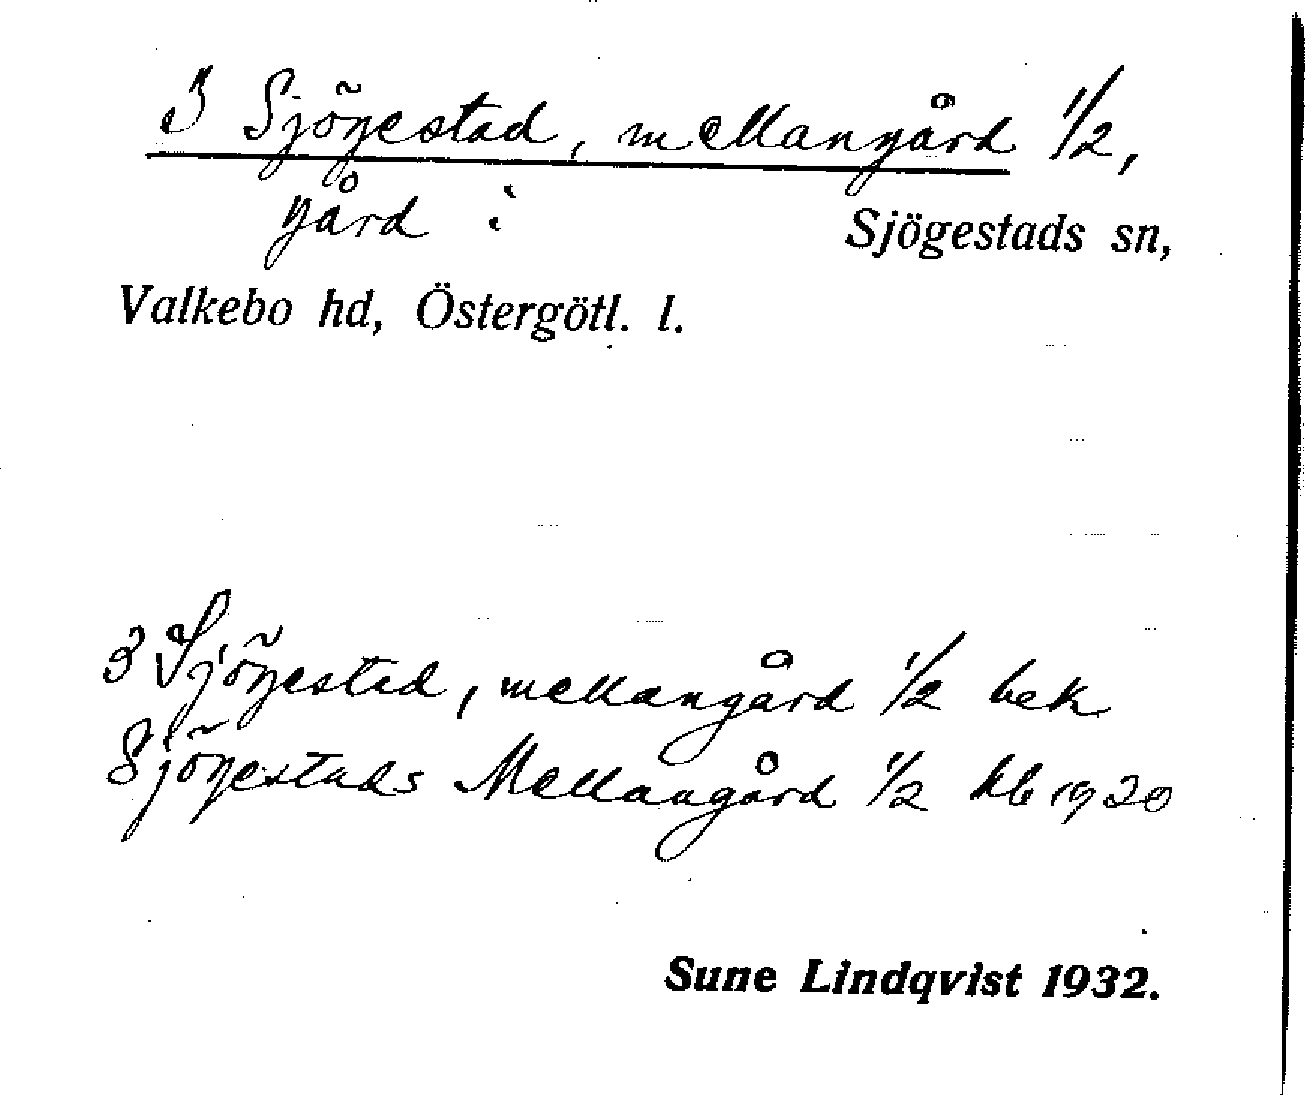 3 Sjögestad, mellangård 1/2,
gård i Sjögestads sn,
Valkebo hd, Östergötl. l.
3 Sjögestad, mellangård 1/2 bek
Sjögestads Mellangård 1/2 kb 1920
Sune Lindqvist 1932.